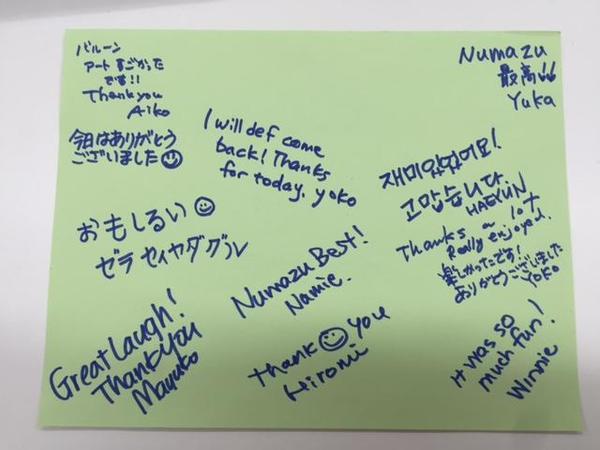 バルーン
アート すごかった
です!!
Thank you
Aiko
今日はありがとう
ございました
Numazu
最高!!
Yuka
I will def come
back! Thanks
for today. yoko
재미있었어요!
고맙습니다.
HAEYUN
おもしるい
ゼラ セイヤダグル
Thanks a lot
Really enjoyed.
楽しかったです!
ありがとうございました
Yoko
Numazu Best!
Namie.
Great laugh!
Thank you
Mayuko
Thank you
Hiromi
It was so
much fun!
Winnie